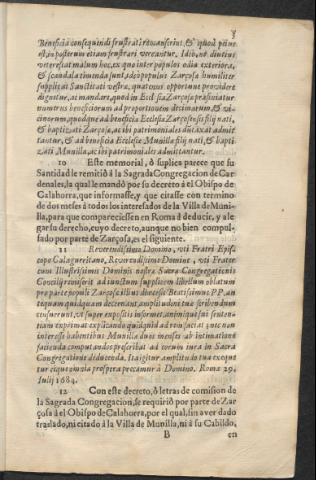 3
Beneficia consequendi frustrati retocanserint, & quod peius
est, in posterum etiam frustrari vereantur. Ideò, ne diutius
veterescat malum hoc, ex quo inter populos odia exteriora,
& scandala timenda sunt, adeò populus Zarçosa humiliter
supplicat Sanctitati vestra, quatenus opportune providere
dignetur, ac mandare, quod in Ecclesia Zarçosa præfiniatur
numerus beneficiorum ad proportionem decimarum & vi-
cinorum, quodque ad beneficia Ecclesiæ Zarçosensis filij nati,
& baptizati Zarçosa, ac ibi patrimoniales dūtaxat admit
tantur, & ad beneficia Ecclesiæ Munilla filij nati, & bapti-
zati Munilla, ac ibi patrimoniales admittantur.
10 Este memorial, ò suplica parece que su
Santidad le remitiò à la Sagrada Congregacion de Car
denales, la qual le mandò por su decreto à el Obispo de
Calahorra, que informasse, y que citasse con termino
de dos meses à todos los interesados de la Villa de Muni-
lla, para que compareciessen en Roma à deducir, y ale
gar su derecho, cuyo decreto, aunque no bien compul-
sado por parte de Zarçosa, es el siguiente.
11 Reverendissimo Domino, vti Fratri Epis-
copo Calagurritano, Reverendissime Domine, vti Frater
cum Illustrissimis Dominis nostra Sacra Congregationis
Concilij remiserit adiunctum supplicem libellum oblatum
pro parte populi Zarçosa illius diœcesis Beatissimus P.P. an
tequam quidquam decernant, amplitudini tuæ scribendum
censuerunt, vt super expositis informet, animique sui senten-
tiam exprimat explicando quidquid ad rem faciat; nec non
interesse habentibus Munilla duos menses ab intimatione
facienda computandos præscribat ad eorum iura in Sacra
Congregatione deducenda. Ita igitur amplitudo tua exequa
tur eique omnia prospera precamur à Domino. Roma 29.
Iulij 1684.
12 Con este decreto, ò letras de comision de
la Sagrada Congregacion, se requiriò por parte de Zar
çosa à el Obispo de Calahorra, por el qual, sin aver dado
traslado, ni citado à la Villa de Munilla, ni à su Cabildo,
B en